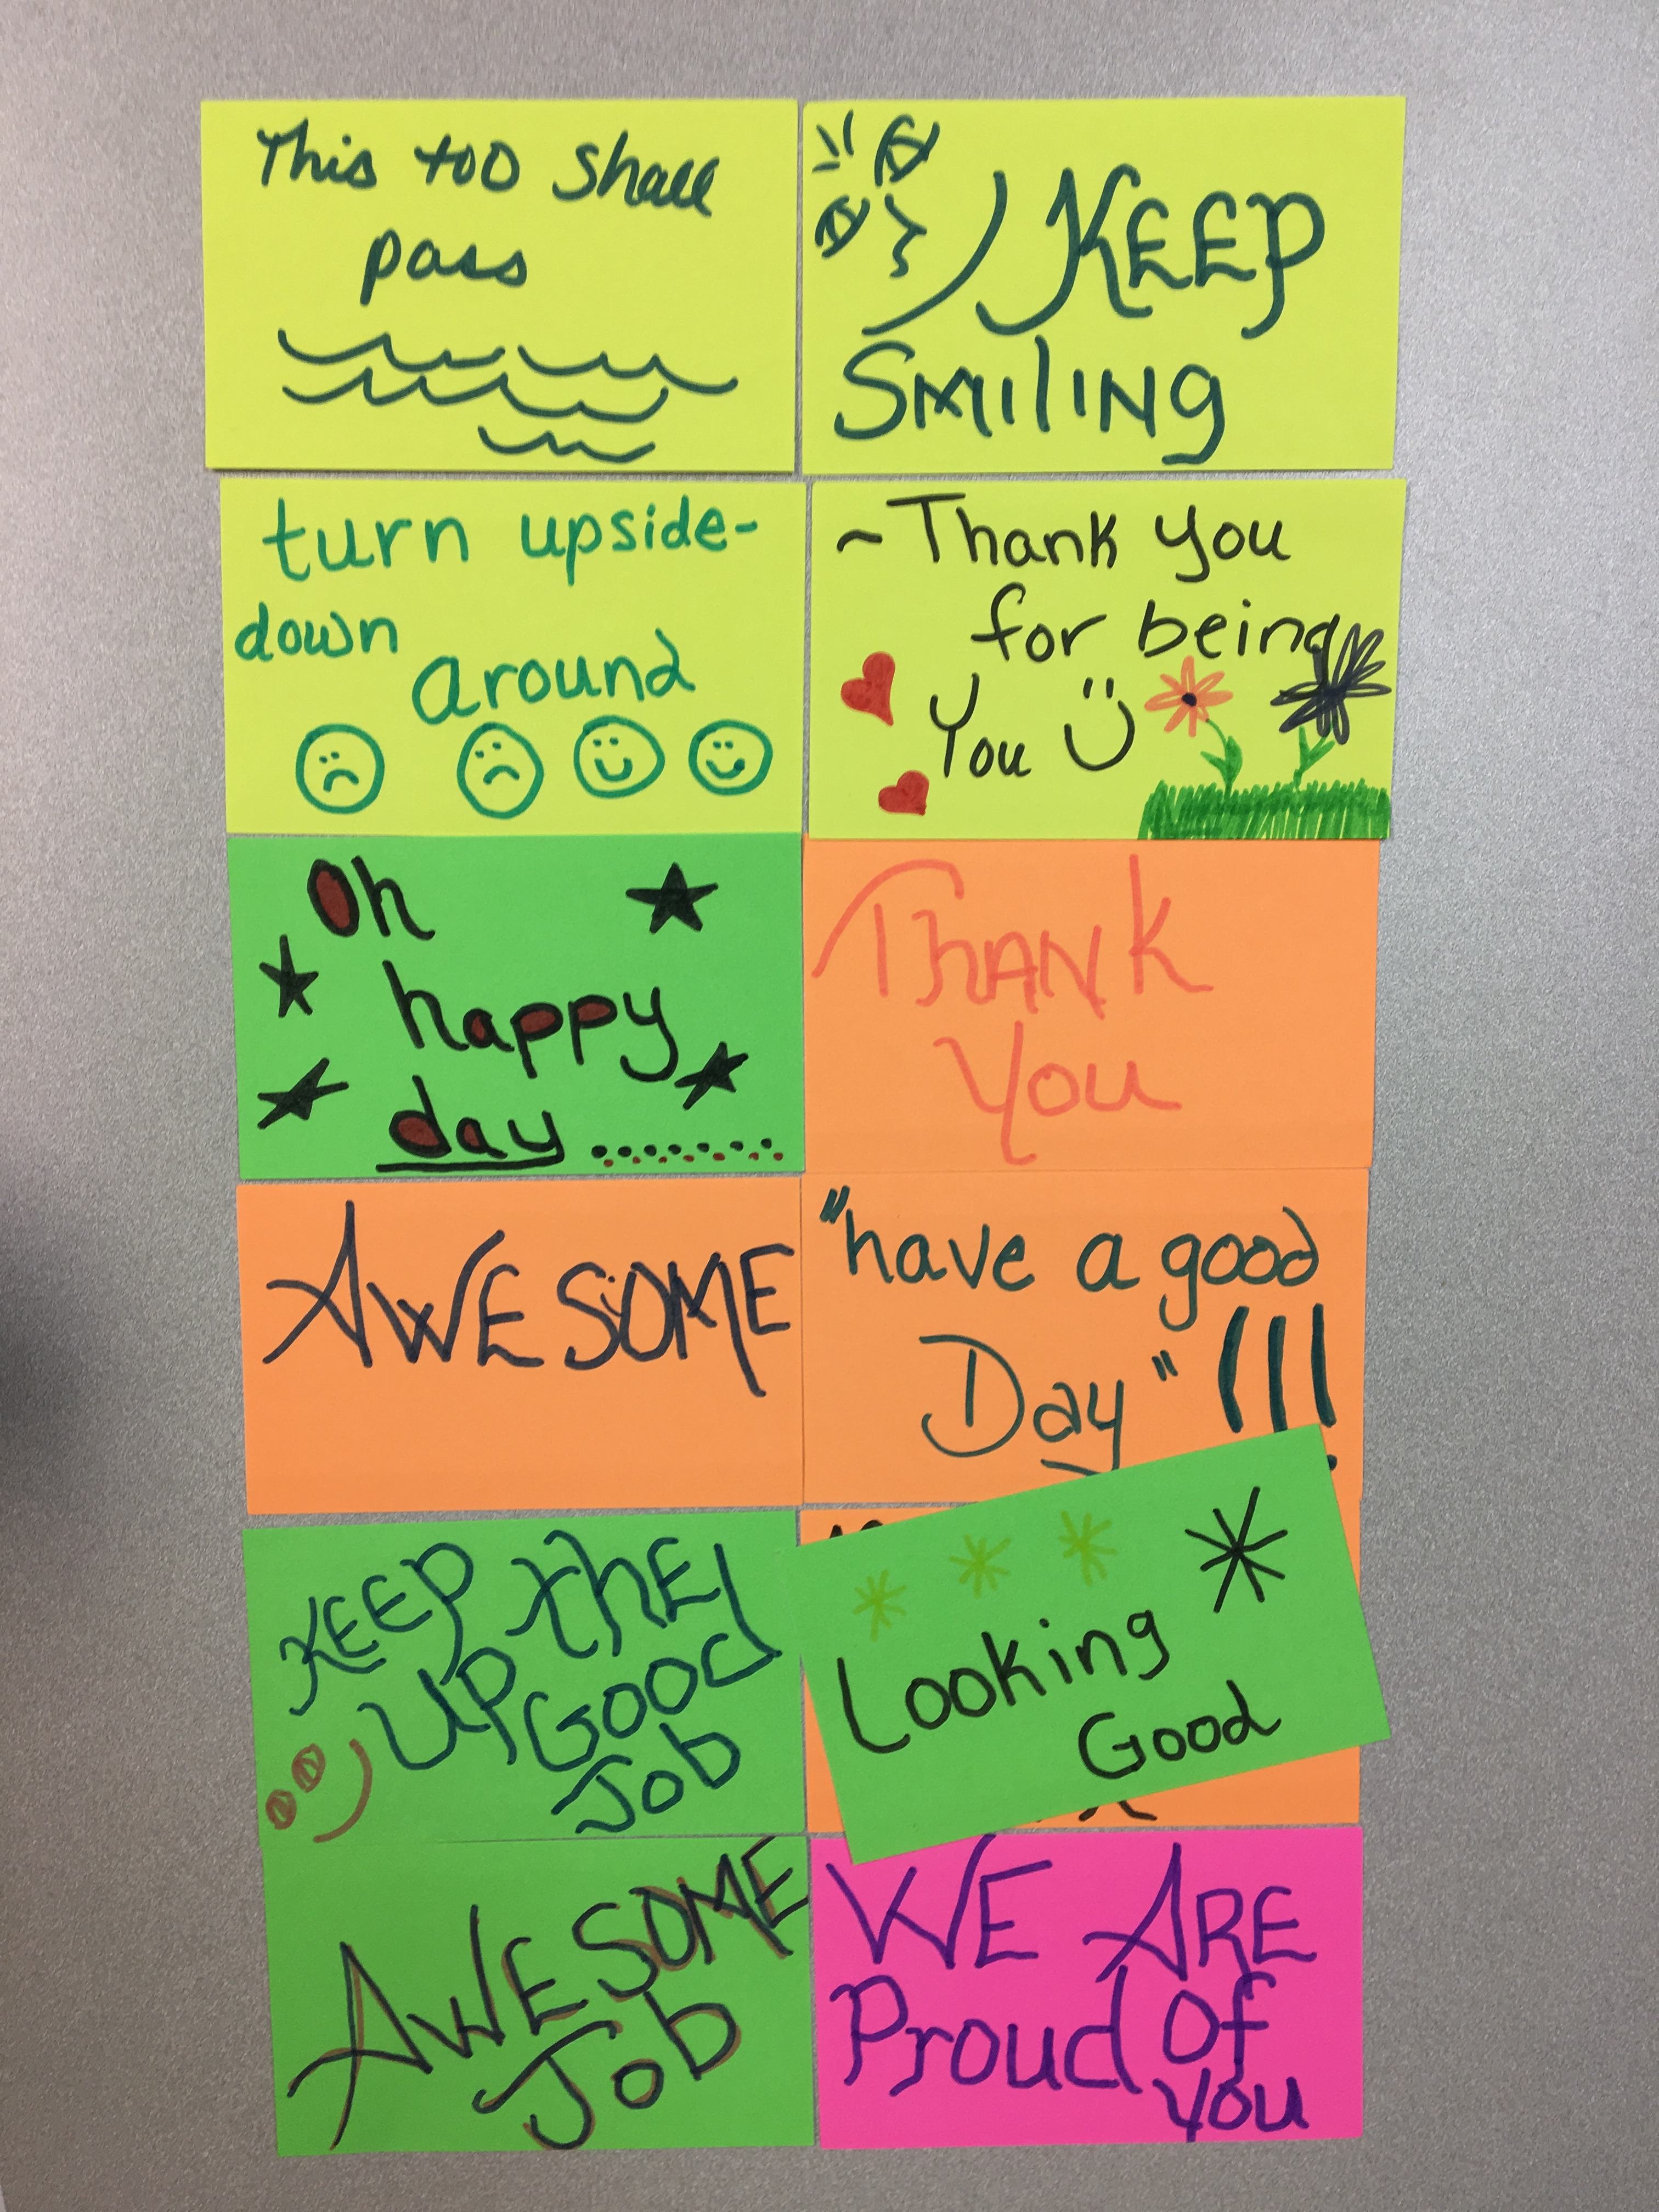 This too shall
pass
KEEP
SMILING
turn upside-
down
around
~Thank you
for being
You
Oh
happy
day
THANK
You
AWESOME
"have a good
Day" !!!
KEEP THE
UP GOOD
JOB
Looking
Good
AWESOME
JOB
WE ARE
Proud Of
you